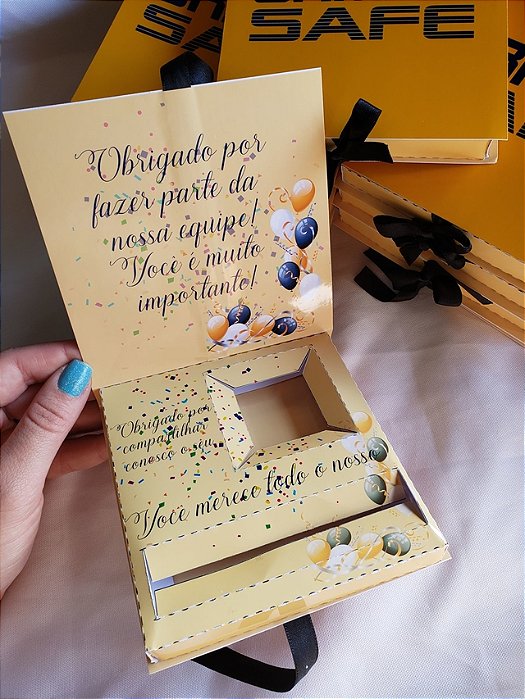 SAFE
SAFE
Obrigado por
fazer parte da
nossa equipe!
Você é muito
importante!
Obrigado por
compartilhar
conosco o seu
Você merece todo o nosso